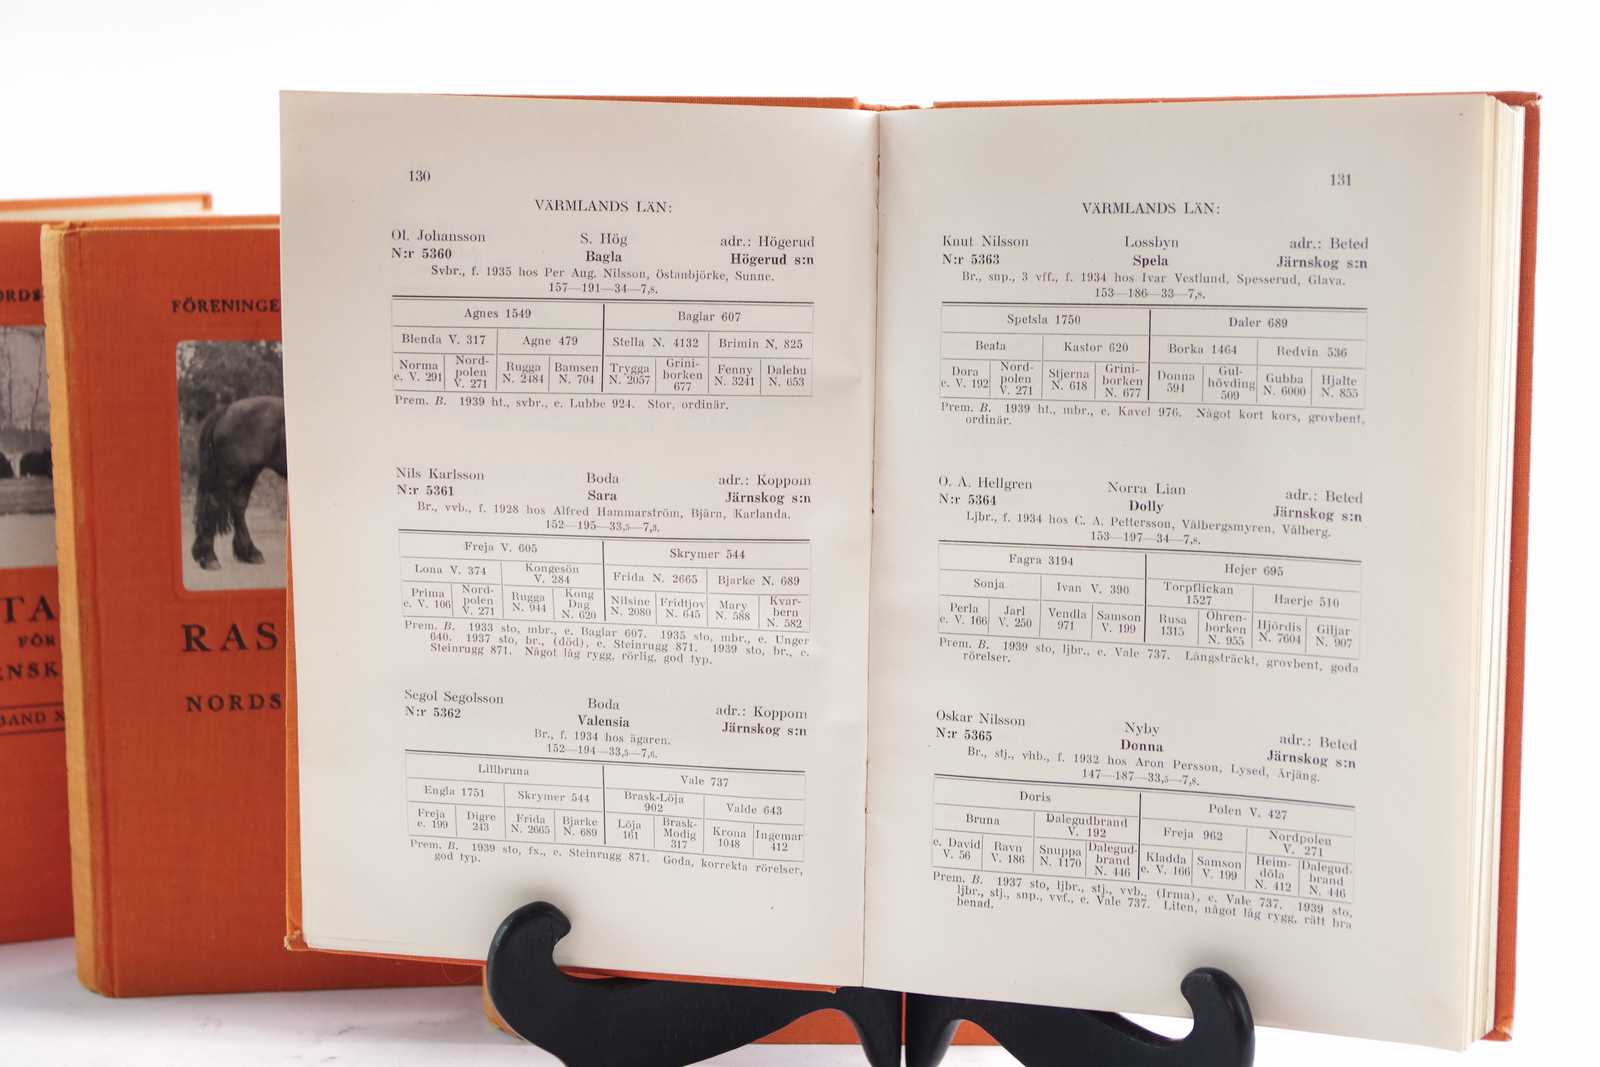 ORDS
TA
FÖR
ENSK
BAND X
FÖRENINGE
RAS
NORDS
130
VÄRMLANDS LÄN:
Ol. Johansson S. Hög adr.: Högerud
N:r 5360 Bagla Högerud s:n
Svbr., f. 1935 hos Per Aug. Nilsson, Östanbjörke, Sunne.
157—191—34—7,8.
Agnes 1549 Baglar 607
Blenda V. 317 Agne 479 Stella N. 4132 Brimin N. 825
Norma e. V. 291 Nord-polen V. 271 Rugga N. 2484 Bamsen N. 704 Trygga N. 2057 Grini-borken 677 Fenny N. 3241 Dalebu N. 653
Prem. B. 1939 ht., svbr., e. Lubbe 924. Stor, ordinär.
Nils Karlsson Boda adr.: Koppom
N:r 5361 Sara Järnskog s:n
Br., vvb., f. 1928 hos Alfred Hammarström, Bjärn, Karlanda.
152—195—33,5—7,8.
Freja V. 605 Skrymer 544
Lona V. 374 Kongesön V. 284 Frida N. 2665 Bjarke N. 689
Prima e. V. 106 Nord-polen V. 271 Rugga N. 944 Kong Dag N. 620 Nilsine N. 2080 Fridtjov N. 645 Mary N. 588 Kvar-bern N. 582
Prem. B. 1933 sto, mbr., e. Baglar 607. 1935 sto, mbr., e. Unger
640. 1937 sto, br., (död), e. Steinrugg 871. 1939 sto, br., e.
Steinrugg 871. Något låg rygg, rörlig, god typ.
Segol Segolsson Boda adr.: Koppom
N:r 5362 Valensia Järnskog s:n
Br., f. 1934 hos ägaren.
152—194—33,5—7,6.
Lillbruna Vale 737
Engla 1751 Skrymer 544 Brask-Löja 902 Valde 643
Freja e. 199 Digre 243 Frida N. 2665 Bjarke N. 689 Löja 161 Brask-Modig 317 Krona 1048 Ingemar 412
Prem. B. 1939 sto, fx., e. Steinrugg 871. Goda, korrekta rörelser,
god typ.
131
VÄRMLANDS LÄN:
Knut Nilsson Lossbyn adr.: Beted
N:r 5363 Spela Järnskog s:n
Br., snp., 3 vff., f. 1934 hos Ivar Vestlund, Spesserud, Glava.
153—186—33—7,8.
Spetsla 1750 Daler 689
Beata Kastor 620 Borka 1464 Redvin 536
Dora e. V. 192 Nord-polen V. 271 Stjerna N. 618 Grini-borken N. 677 Donna 594 Gul-hövding 509 Gubba N. 6000 Hjalte N. 855
Prem. B. 1939 ht., mbr., e. Kavel 976. Något kort kors, grovbent,
ordinär.
O. A. Hellgren Norra Lian adr.: Beted
N:r 5364 Dolly Järnskog s:n
Ljbr., f. 1934 hos C. A. Pettersson, Välbergsmyren, Vålberg.
153—197—34—7,8.
Fagra 3194 Hejer 695
Sonja Ivan V. 390 Torpflickan 1527 Haerje 510
Perla e. V. 166 Jarl V. 250 Vendla 971 Samson V. 199 Rusa 1315 Ohren-borken N. 955 Hjördis N. 7604 Giljar N. 907
Prem. B. 1939 sto, ljbr., e. Vale 737. Långsträckt, grovbent, goda
rörelser.
Oskar Nilsson Nyby adr.: Beted
N:r 5365 Donna Järnskog s:n
Br., stj., vhb., f. 1932 hos Aron Persson, Lysed, Årjäng.
147—187—33,5—7,8.
Doris Polen V. 427
Bruna Dalegudbrand V. 192 Freja 962 Nordpolen V. 271
e. David V. 56 Ravn V. 186 Snuppa N. 1170 Dalegud-brand N. 446 Kladda e. V. 166 Samson V. 199 Heim-döla N. 412 Dalegud-brand N. 446
Prem. B. 1937 sto, ljbr., stj., vvb., (Irma), e. Vale 737. 1939 sto,
ljbr., stj., snp., vvf., e. Vale 737. Liten, något låg rygg, rätt bra
benad.